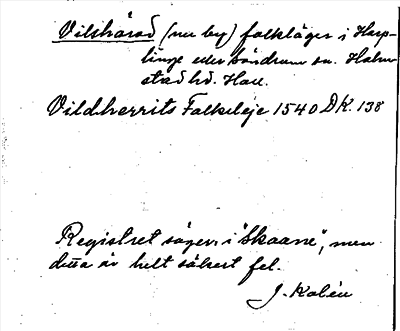 Vilshärad (nu by) falkläger i Harp-
linge eller Söndrum sn. Halm-
stad hd. Hall.
Vildherrits Falkeleje 1540 DK. 138
Registret säger: i "Skaane", men
detta är helt säkert fel.
J. Kalén